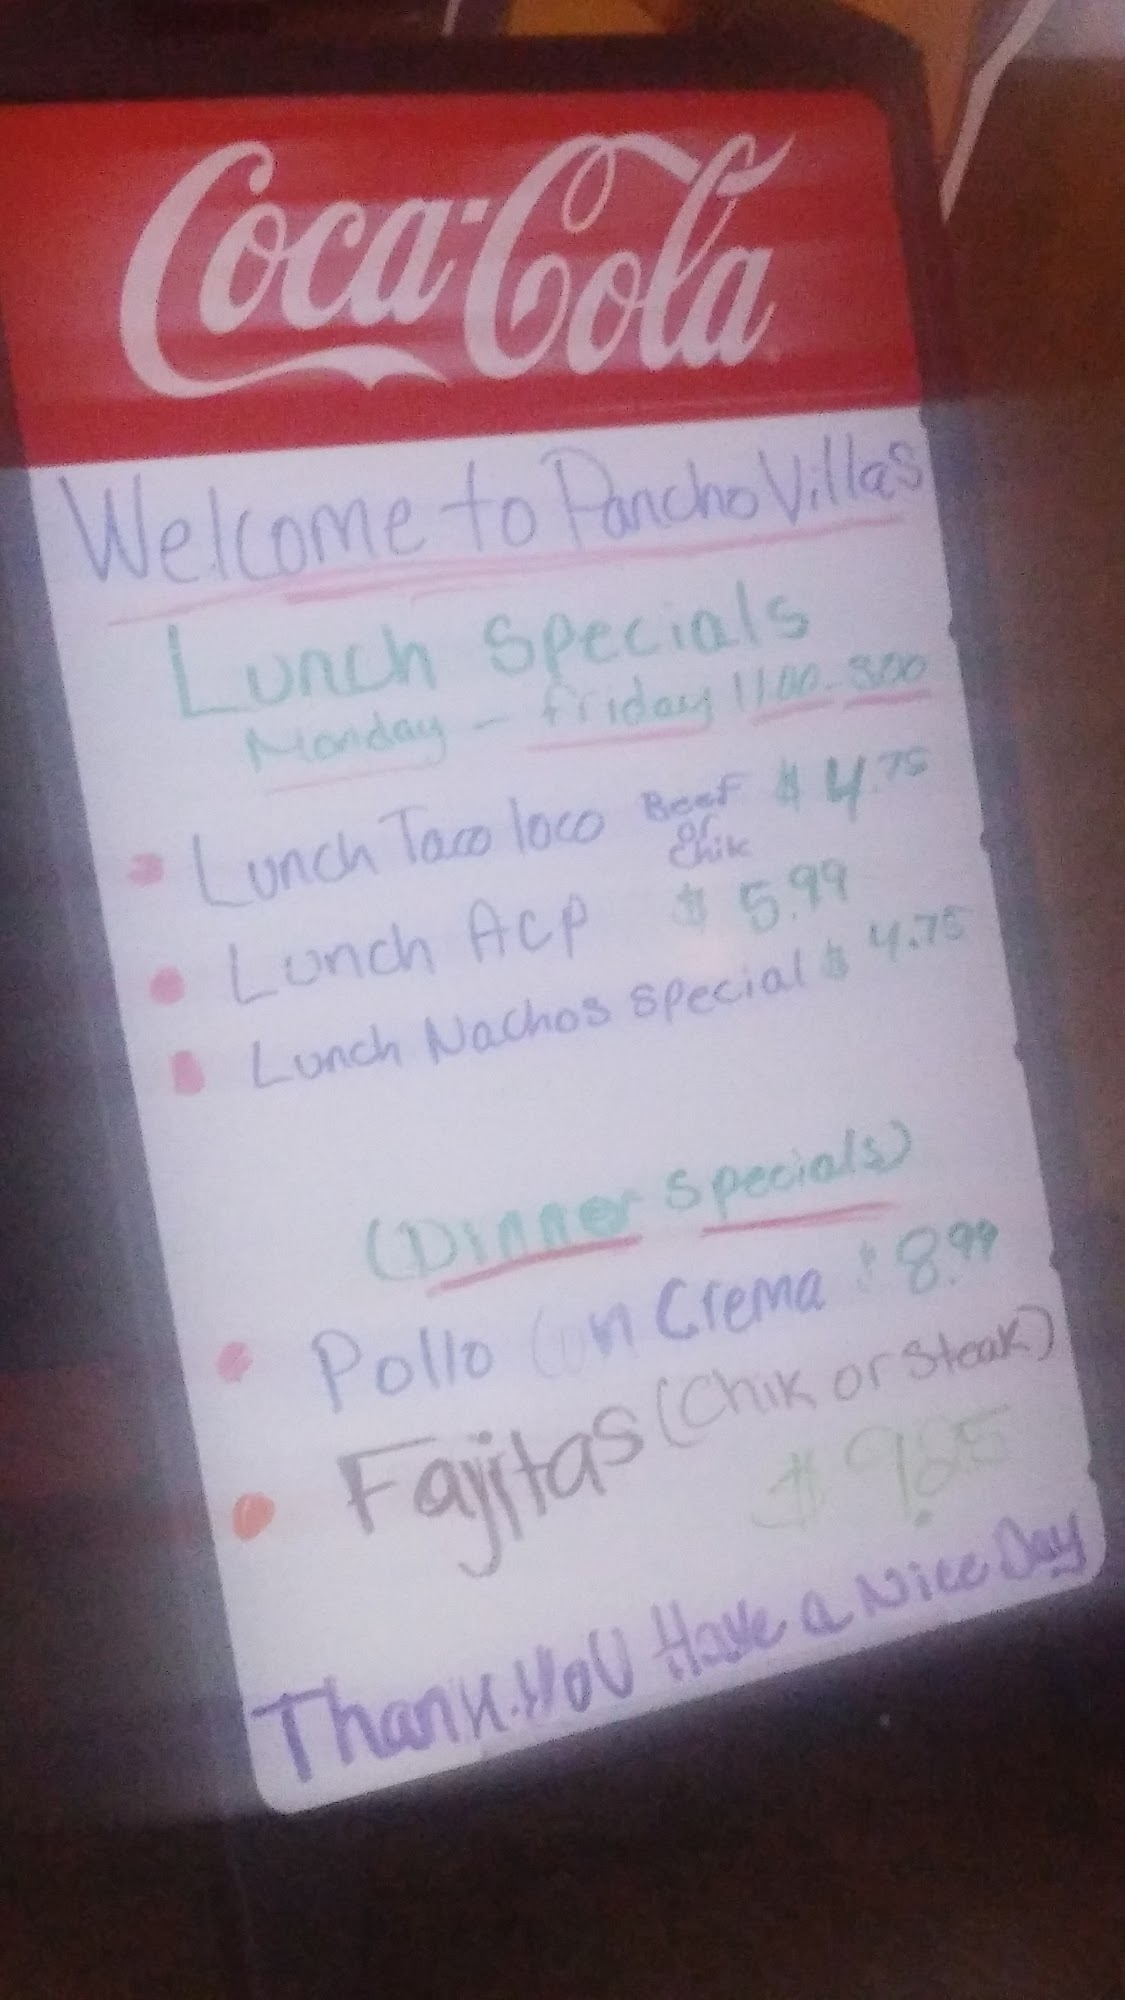 Coca-Cola
Welcome to Pancho Villas
Lunch Specials
Monday - friday 11:00-300
Lunch Taco loco Beef or Chik $4.75
Lunch ACP $5.99
Lunch Nachos special $4.75
(Dinner specials)
Pollo Con Crema $8.99
Fajitas (Chik or Steak)
Thank.YoU Have a Nice Day